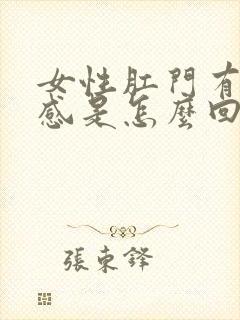 女性肛門有
感是怎麼回
張東鋒